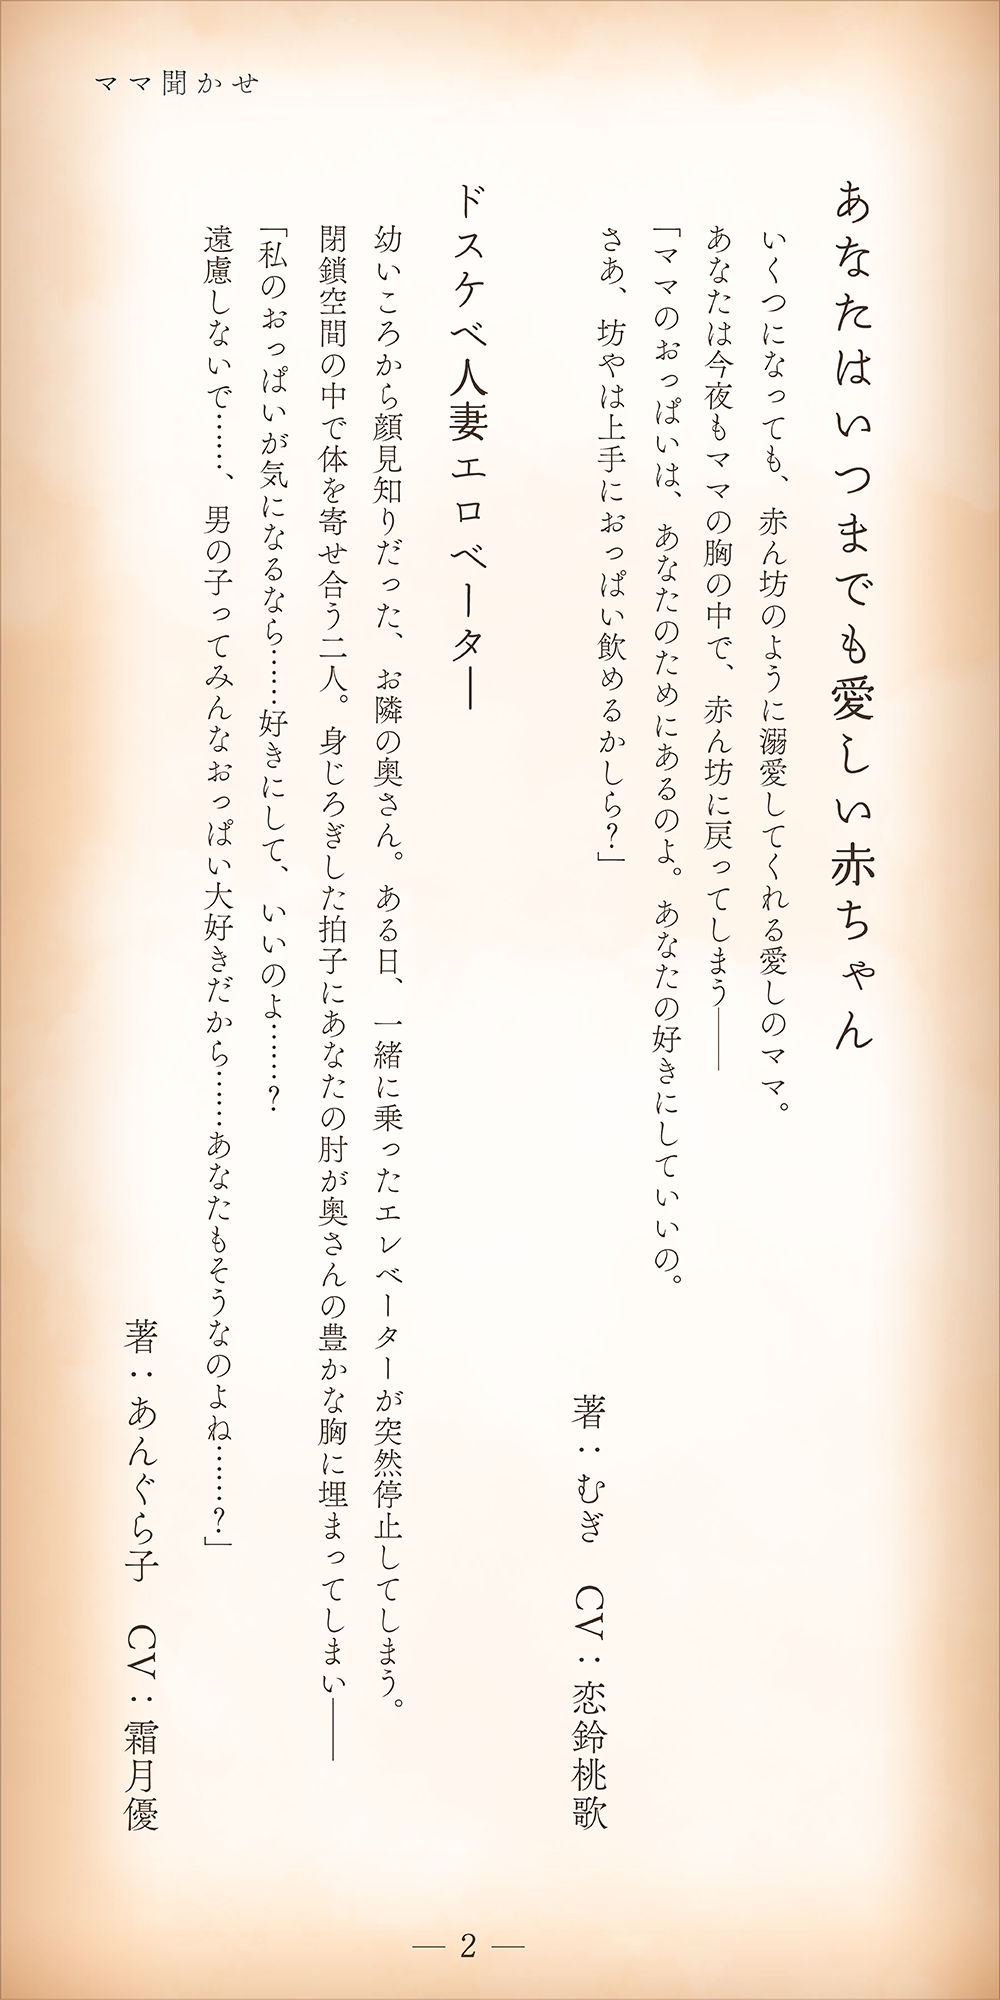 ママ聞かせ
あなたはいつまでも愛しい赤ちゃん
いくつになっても、赤ん坊のように溺愛してくれる愛しのママ。
あなたは今夜もママの胸の中で、赤ん坊に戻ってしまう――
「ママのおっぱいは、あなたのためにあるのよ。あなたの好きにしていいの。
さあ、坊やは上手におっぱい飲めるかしら？」
著：むぎ　CV：恋鈴桃歌
ドスケベ人妻エロベーター
幼いころから顔見知りだった、お隣の奥さん。ある日、一緒に乗ったエレベーターが突然停止してしまう。
閉鎖空間の中で体を寄せ合う二人。身じろぎした拍子にあなたの肘が奥さんの豊かな胸に埋まってしまい――
「私のおっぱいが気になるなら……好きにして、いいのよ……？
遠慮しないで……、男の子ってみんなおっぱい大好きだから……あなたもそうなのよね……？」
著：あんぐら子　CV：霜月優
― 2 ―